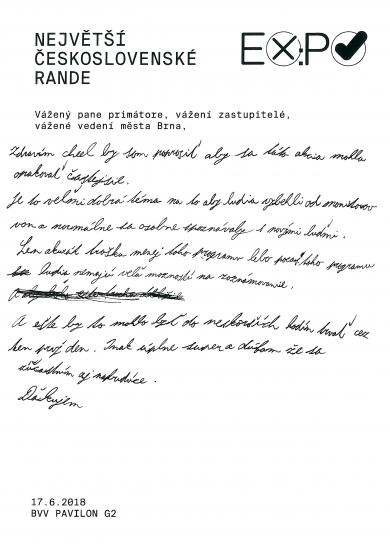 NEJVĚTŠÍ
ČESKOSLOVENSKÉ
RANDE
EX:PO
Vážený pane primátore, vážení zastupitelé,
vážené vedení města Brna,
Zdravím chcel by som poprosiť aby sa táto akcia mohla
opakovať častejšie.
Je to veľmi dobrá téma na to aby ľudia vybehli od monitorov
von a normálne sa osobne spoznávaly s novými ľudmi.
Len akurát troška menej toho programu lebo počas toho programu
ludia nemajú veľa možností na zoznámovanie.
A ešte by to mohlo byť do neskorších hodín trvať cez
ten prvý den. Inak úplne super a dúfam že sa
zúčastním aj nabudúce.
Ďakujem
17.6.2018
BVV PAVILON G2